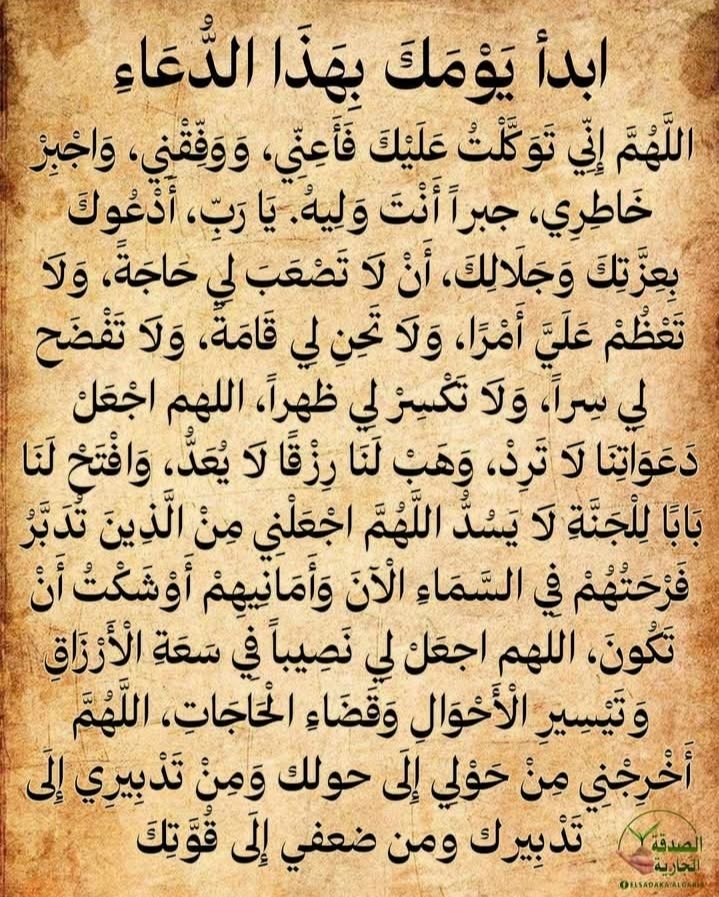 ابدأ يَوْمَكَ بِهَذَا الدُّعَاءِ
اللَّهُمَّ إِنِّي تَوَكَّلْتُ عَلَيْكَ فَأَعِنِّي، وَوَفِّقْنِي، وَاجْبِرْ
خَاطِرِي، جبراً أَنْتَ وَلِيهُ. يَا رَبِّ، أَدْعُوكَ
بِعِزَّتِكَ وَجَلَالِكَ، أَنْ لَا تَصْعَبَ لِي حَاجَةً، وَلَا
تَعْظُمْ عَلَيَّ أَمْرًا، وَلَا تَحْنِ لِي قَامَةً، وَلَا تَفْضَح
لِي سِراً، وَلَا تَكْسِرْ لِي ظهراً، اللهم اجْعَلْ
دَعَوَاتِنَا لَا تَرِدْ، وَهَبْ لَنَا رِزْقًا لَا يُعَدُّ، وَافْتَحْ لَنَا
بَابًا لِلْجَنَّةِ لَا يَسُدُّ اللَّهُمَّ اجْعَلْنِي مِنْ الَّذِينَ تُدَبَّرُ
فَرْحَتُهُمْ فِي السَّمَاءِ الْآنَ وَأَمَانِيهِمْ أَوْشَكْتُ أَنْ
تَكُونَ، اللهم اجعَلْ لِي نَصِيباً فِي سَعَةِ الْأَرْزَاقِ
وَتَيْسِيرِ الْأَحْوَالِ وَقَضَاءِ الْحَاجَاتِ، اللَّهُمَّ
أَخْرِجْنِي مِنْ حَوْلِي إِلَى حولك وَمِنْ تَدْبِيرِي إِلَى
تَدْبِيرك ومن ضعفي إِلَى قُوَّتِكَ
الصدقة
الجارية
ELSADAKA.ALGARIA